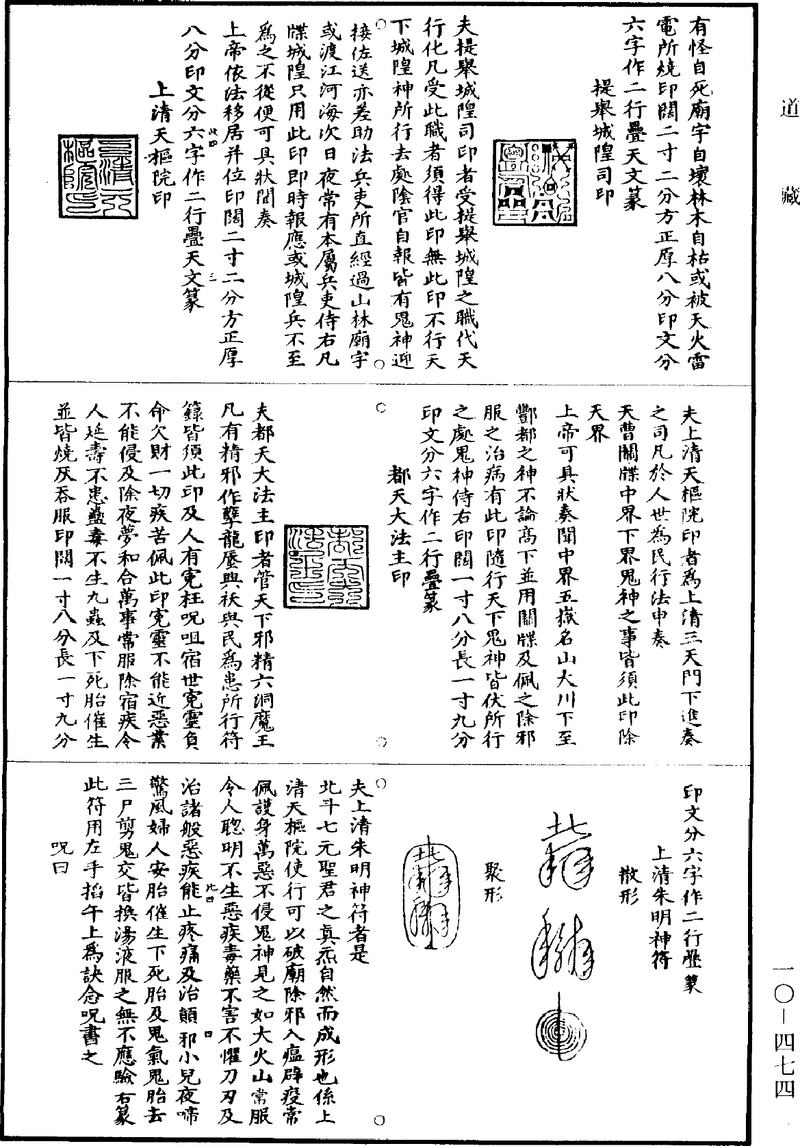 道藏
有怪自死廟宇自壞林木自枯或被天火雷
電所燒印闊二寸二分方正厚八分印文分
六字作二行疊天文篆
提舉城隍司印
夫提舉城隍司印者受提舉城隍之職代天
行化凡受此職者須得此印無此印不行天
下城隍神所行去處陰官自報皆有鬼神迎
接佐送亦差助法兵吏所直經過山林廟宇
或渡江河海次日夜常有本屬兵吏侍右凡
牒城隍只用此印即時報應或城隍兵不至
爲之不從便可具狀聞奏
上帝依法移居并位印闊二寸二分方正厚
八分印文分六字作二行疊天文篆
上清天樞院印
夫上清天樞院印者爲上清三天門下進奏
之司凡於人世爲民行法申奏
天曹關牒中界下界鬼神之事皆須此印除
天界
上帝可具狀奏聞中界五嶽名山大川下至
酆都之神不論高下並用關牒及佩之除邪
服之治病有此印隨行天下鬼神皆伏所行
之處鬼神侍右印闊一寸八分長一寸九分
印文分六字作二行疊篆
都天大法主印
夫都天大法主印者管天下邪精六洞魔王
凡有精邪作孽龍蜃興祅與民爲患所行符
籙皆須此印及人有寃枉呪咀宿世寃靈負
命欠財一切疾苦佩此印寃靈不能近惡業
不能侵及除夜夢和合萬事常服除宿疾令
人延壽不患蠱毒不生九蟲及下死胎催生
並皆燒灰吞服印闊一寸八分長一寸九分
印文分六字作二行疊篆
上清朱明神符
散形
聚形
夫上清朱明神符者是
北斗七元聖君之真炁自然而成形也係上
清天樞院使行可以破廟除邪入瘟辟疫常
佩護身萬惡不侵鬼神見之如大火山常服
令人聰明不生惡疾毒藥不害不懼刀刃及
治諸般惡疾能止疼痛及治顛邪小兒夜啼
驚風婦人安胎催生下死胎及鬼氣鬼胎去
三尸剪鬼交皆換湯液服之無不應驗右篆
此符用左手掐午上爲訣念呪書之
呪曰
一〇—四七四